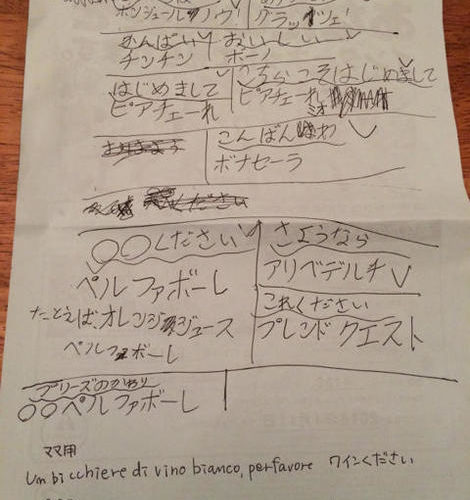 ボンジョールノ
グラッツェ!
かんぱい
おいしい
チンチン
ボーノ
はじめまして
こちらこそはじめまして
ピアチェーれ
ピアチェーれ ミオ
こんばんわ
ボナセーラ
ください
○○ください
さようなら
ペルファボーレ
アリベデルチ
たとえば、オレンジジュース
これください
ペルファボーレ
プレンドクエスト
プリーズのかわり
○○ペルファボーレ
ママ用
Un bicchiere di vino bianco, perfavore ワインください